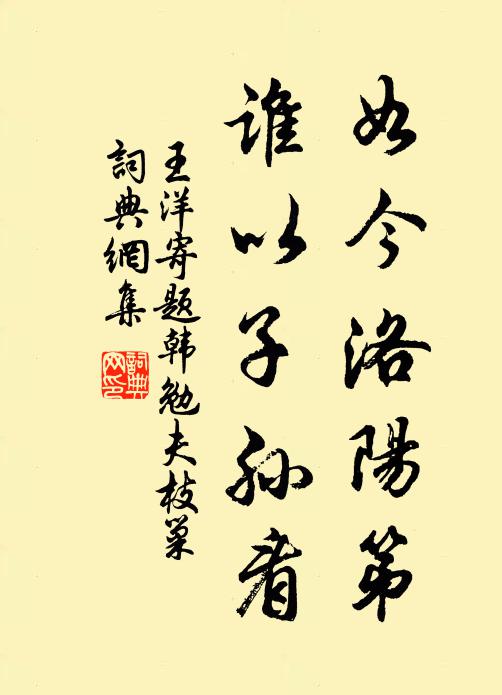 如今洛陽第
誰以子孫看
王洋寄題韩勉夫枝巢
詞典網集
詞典網印